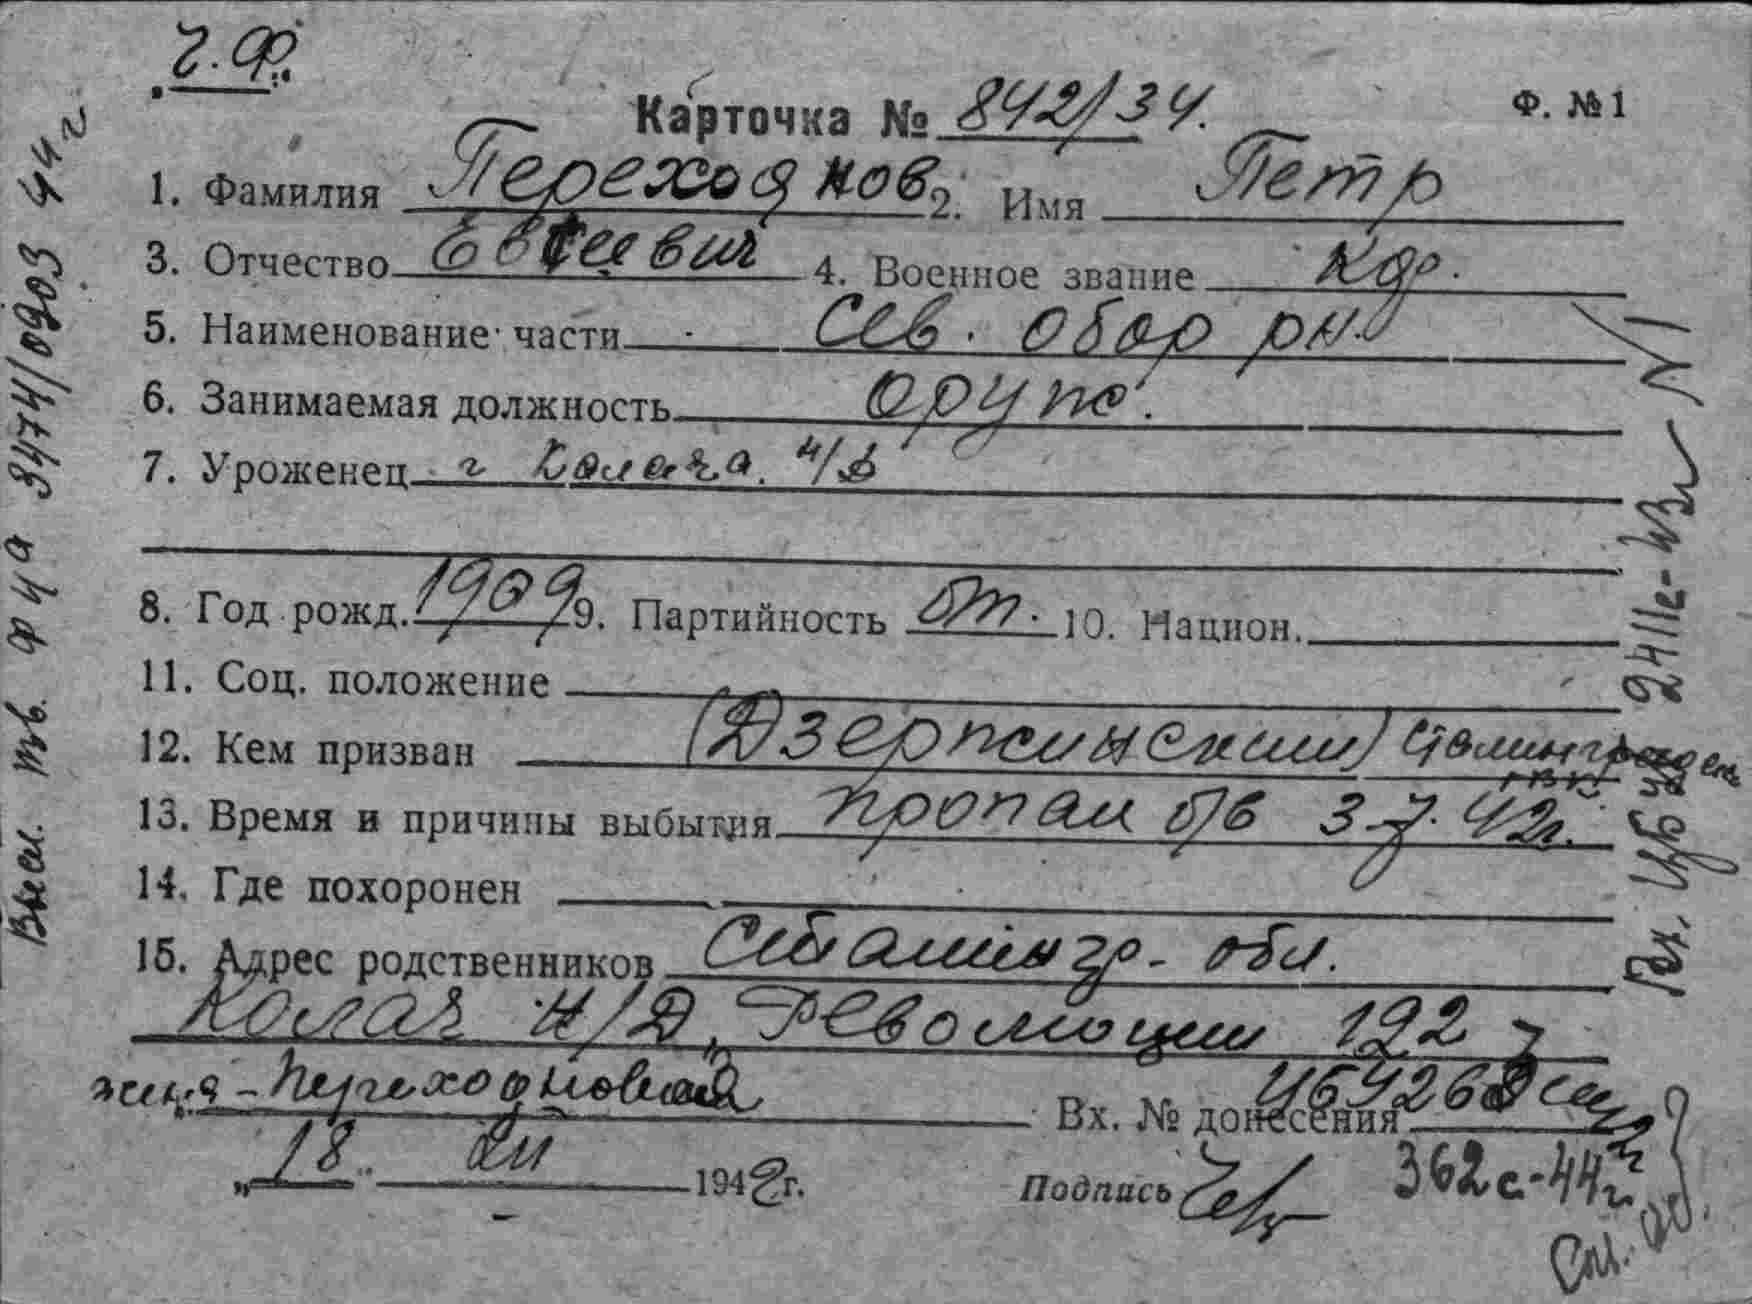 Ч.Ф.
Карточка № 842/34.
Ф. № 1
1. Фамилия Переходнов 2. Имя Петр
3. Отчество Евсеевич 4. Военное звание кр.
5. Наименование части Сев. обор рн.
6. Занимаемая должность
7. Уроженец г Калача. н/Д
8. Год рожд. 1909 9. Партийность б/п. 10. Национ.
11. Соц. положение
12. Кем призван (Дзержинским) Сталинград
13. Время и причины выбытия пропал б/в 3.7.42г.
14. Где похоронен
15. Адрес родственников Сталингр- обл.
Калач н/Д, Революции 192
жена - Переходнова
Вх. № донесения
362с-44г
„18" 194 г.
Подпись
Высл. 3474/0903 44 г
N 1